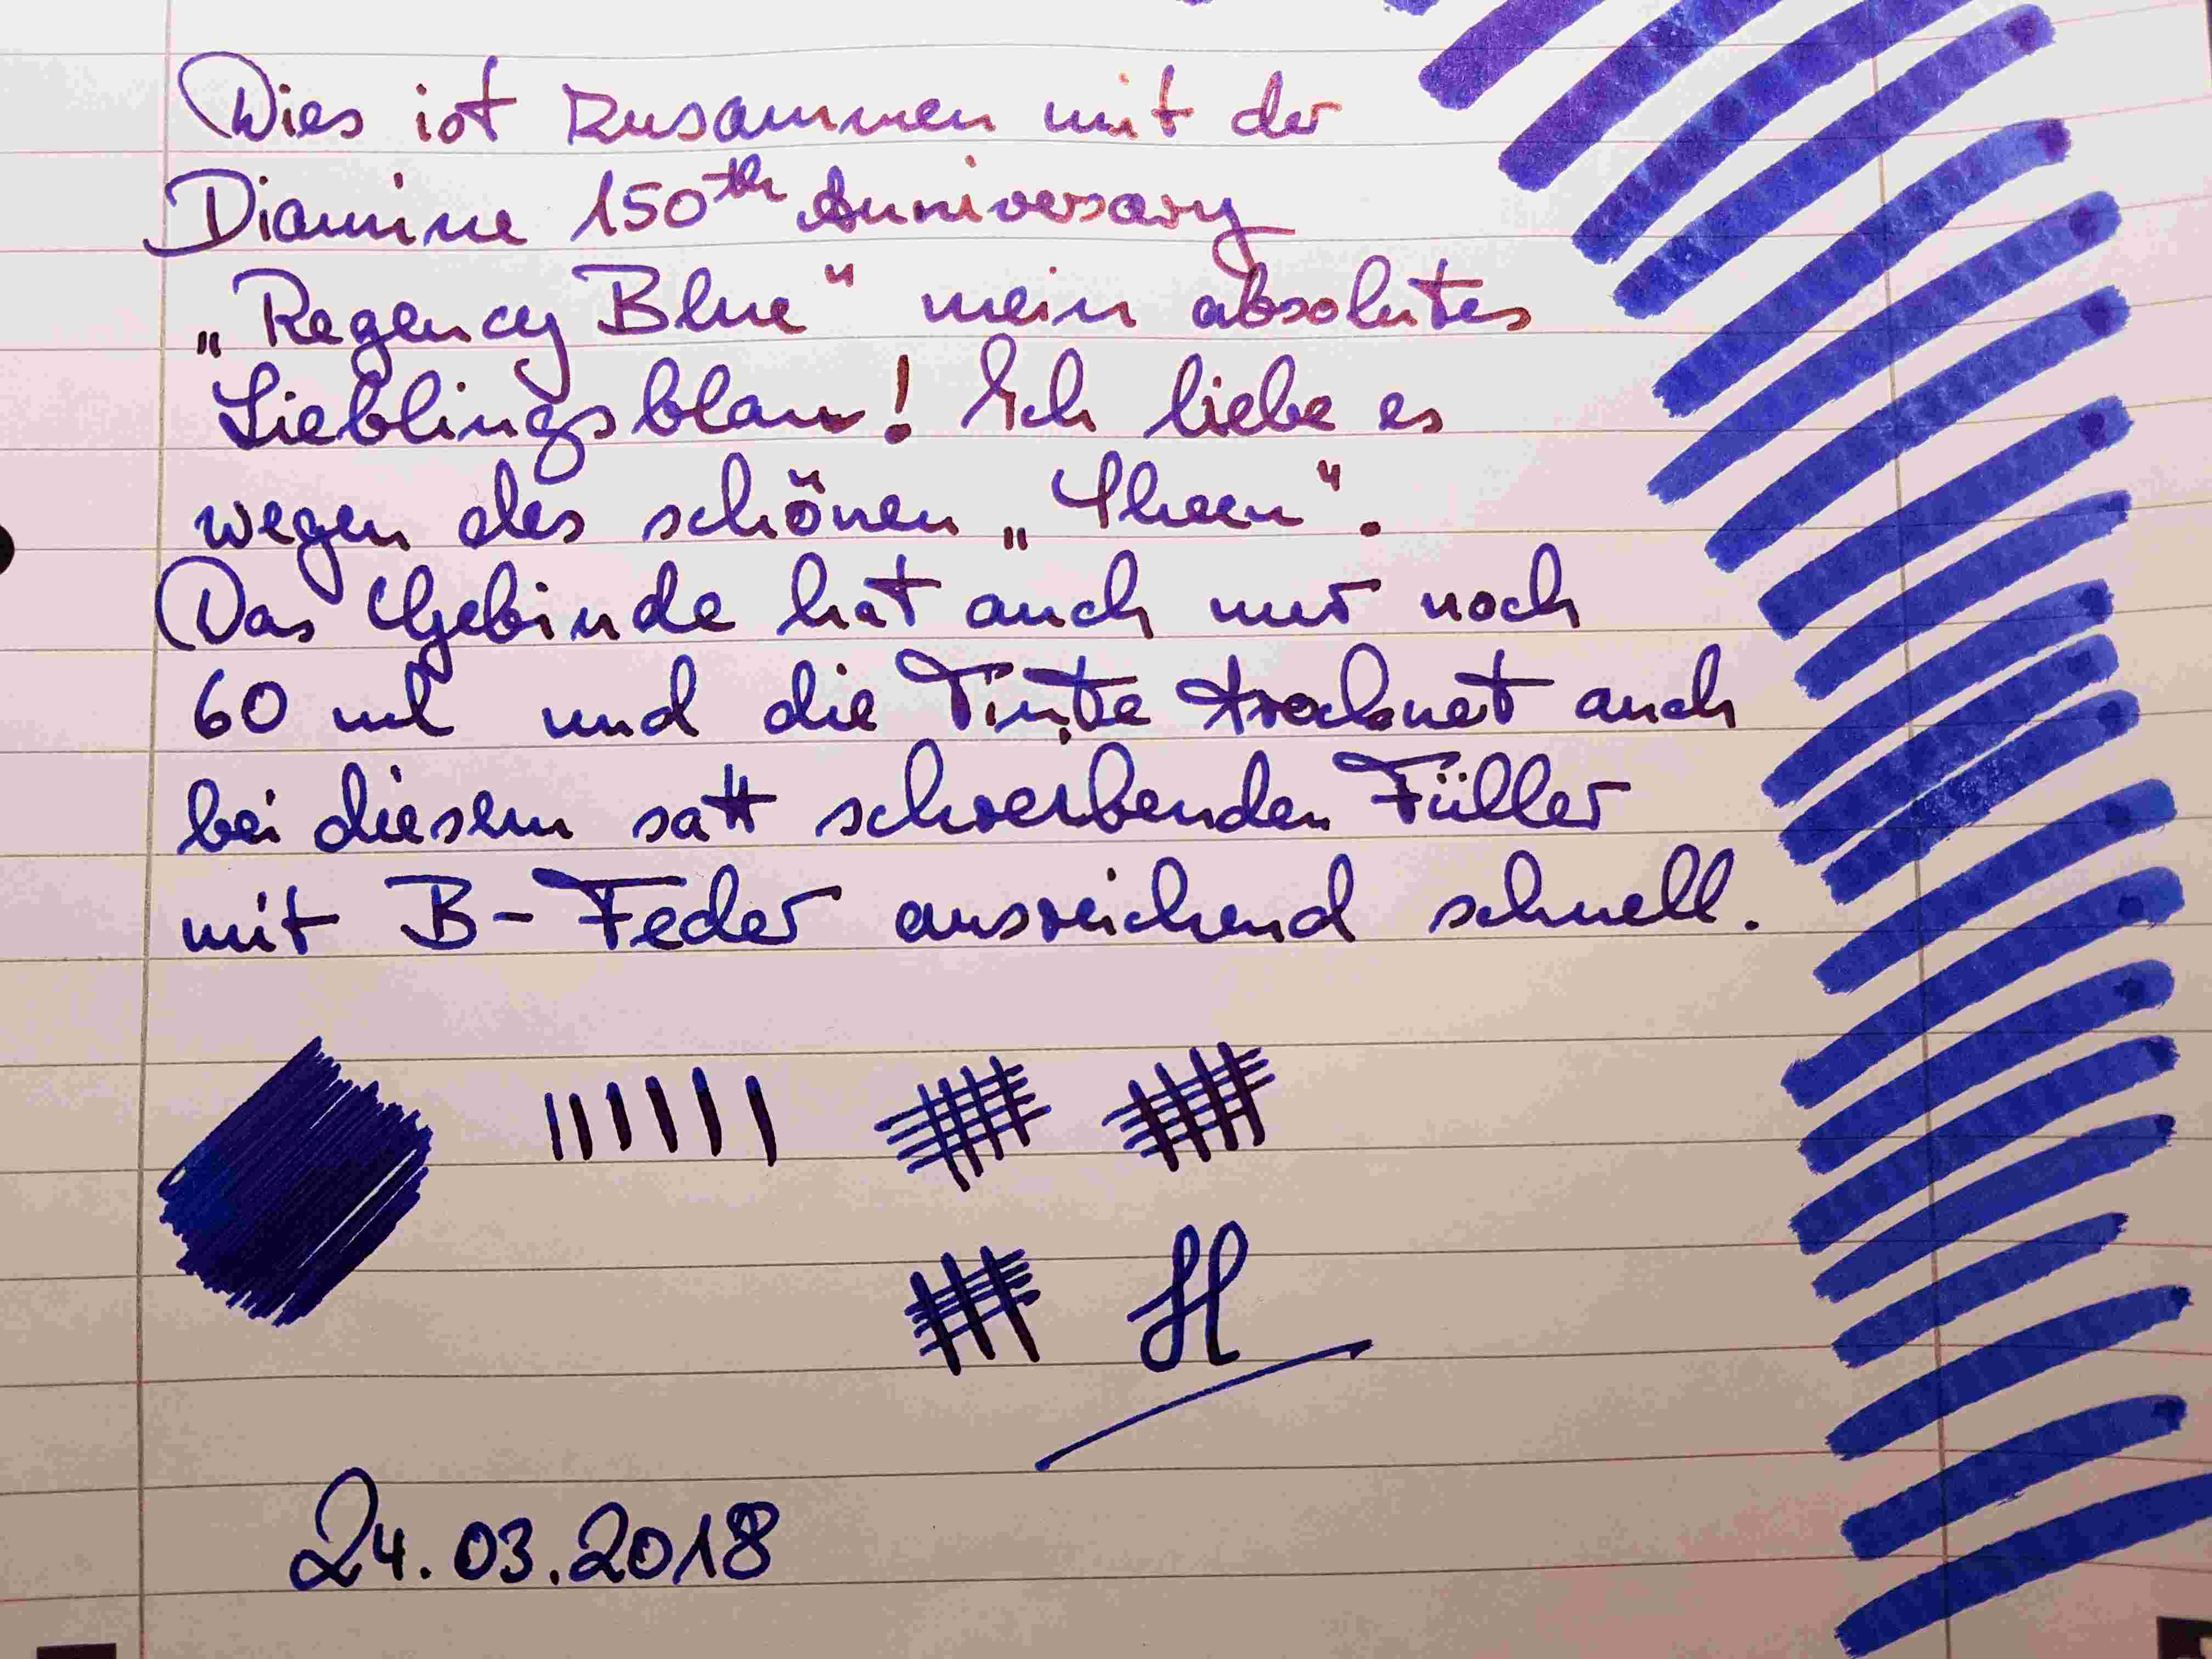 Dies ist zusammen mit der
Diamine 150th Anniversary
„Regency Blue“ mein absolutes
Lieblingsblau! Ich liebe es
wegen des schönen „Sheen“.
Das Gebinde hat auch nur noch
60 ml und die Tinte trocknet auch
bei diesem satt schreibenden Füller
mit B-Feder ausreichend schnell.
H
24.03.2018